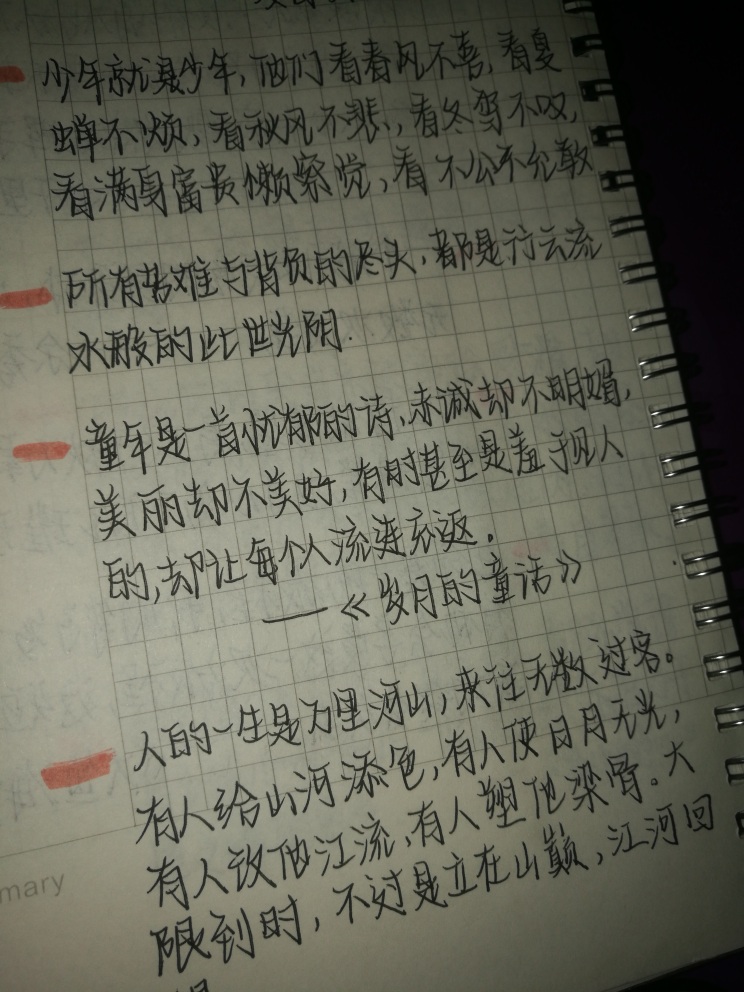 少年就是少年，他们看春风不喜，看夏
蝉不烦，看秋风不悲，看冬雪不叹，
看满身富贵懒察觉，看不公不允敢
所有苦难与背负的尽头，都是行云流
水般的此世光阴.
童年是一首忧郁的诗，赤诚却不明媚，
美丽却不美好，有时甚至是羞于见人
的，却让每个人流连忘返。
——《岁月的童话》
人的一生是万里河山，来往无数过客。
有人给山河添色，有人使日月无光，
有人改他江流，有人塑他梁骨。大
限到时，不过是立在山巅，江河回
mary